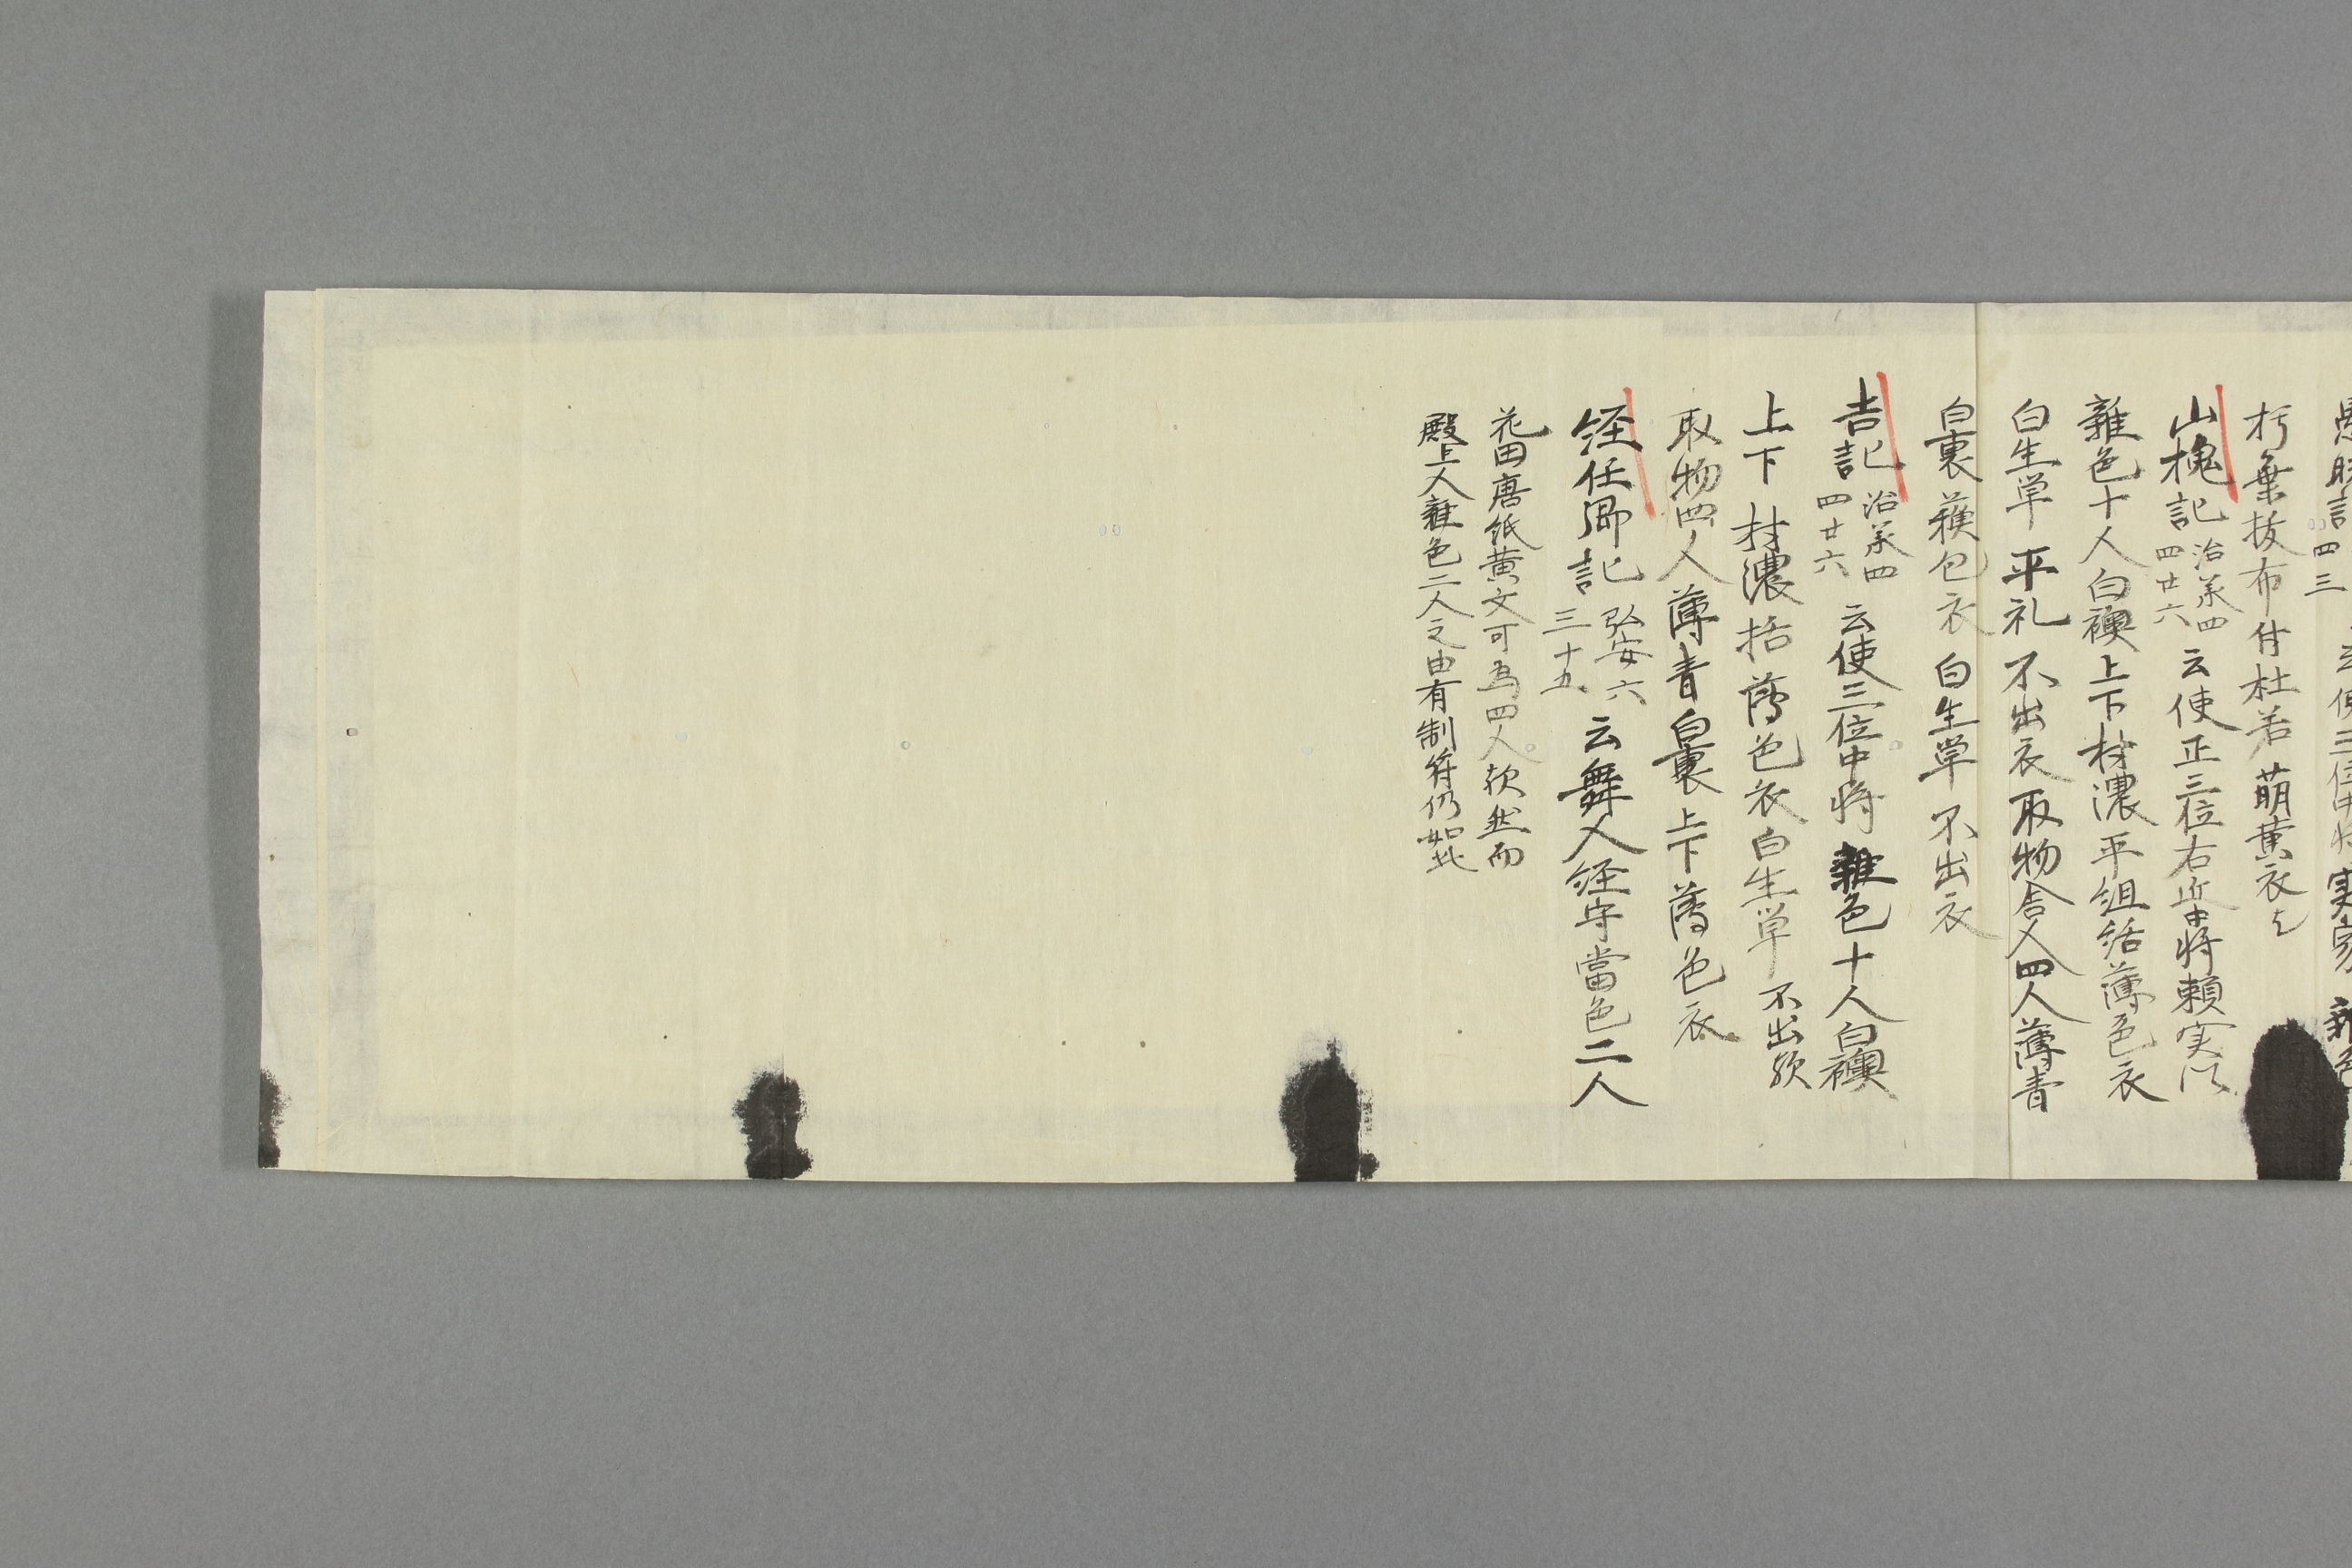 記 四三 云使三位中将実家
朽葉抜布付杜若萌黄衣云
山槐記 治承四 四廿六 云使正三位右近中将頼実以
雑色十人白襖上下村濃平組括薄色衣
白生単 平礼 不出衣 取物舎人四人薄青
白裏 款冬衣 白生単 不出衣
吉記 治承四 四廿六 云使三位中将 雑色十人白襖
上下 村濃括 薄色衣白生単 不出歟
取物四人薄青白裏上下薄色衣
経任卿記 弘安六 三十五 云舞人経守當色二人
花田唐紙黄文可為四人歟然而
殿上人雑色二人之由有制符仍如此